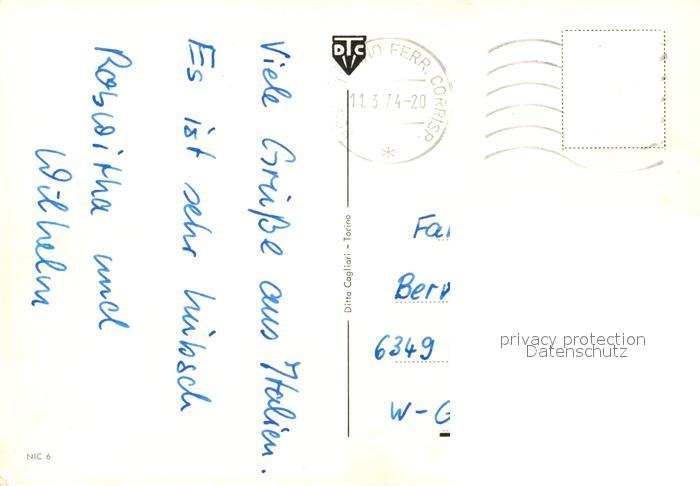 Viele Grüße aus Italien.
Es ist sehr hübsch
Roswitha und
Wilhelm
DTC
FERR. CORRISP.
11.3.74-20
Ditta Cagliari - Torino
6349
W-G
privacy protection
Datenschutz
NIC 6